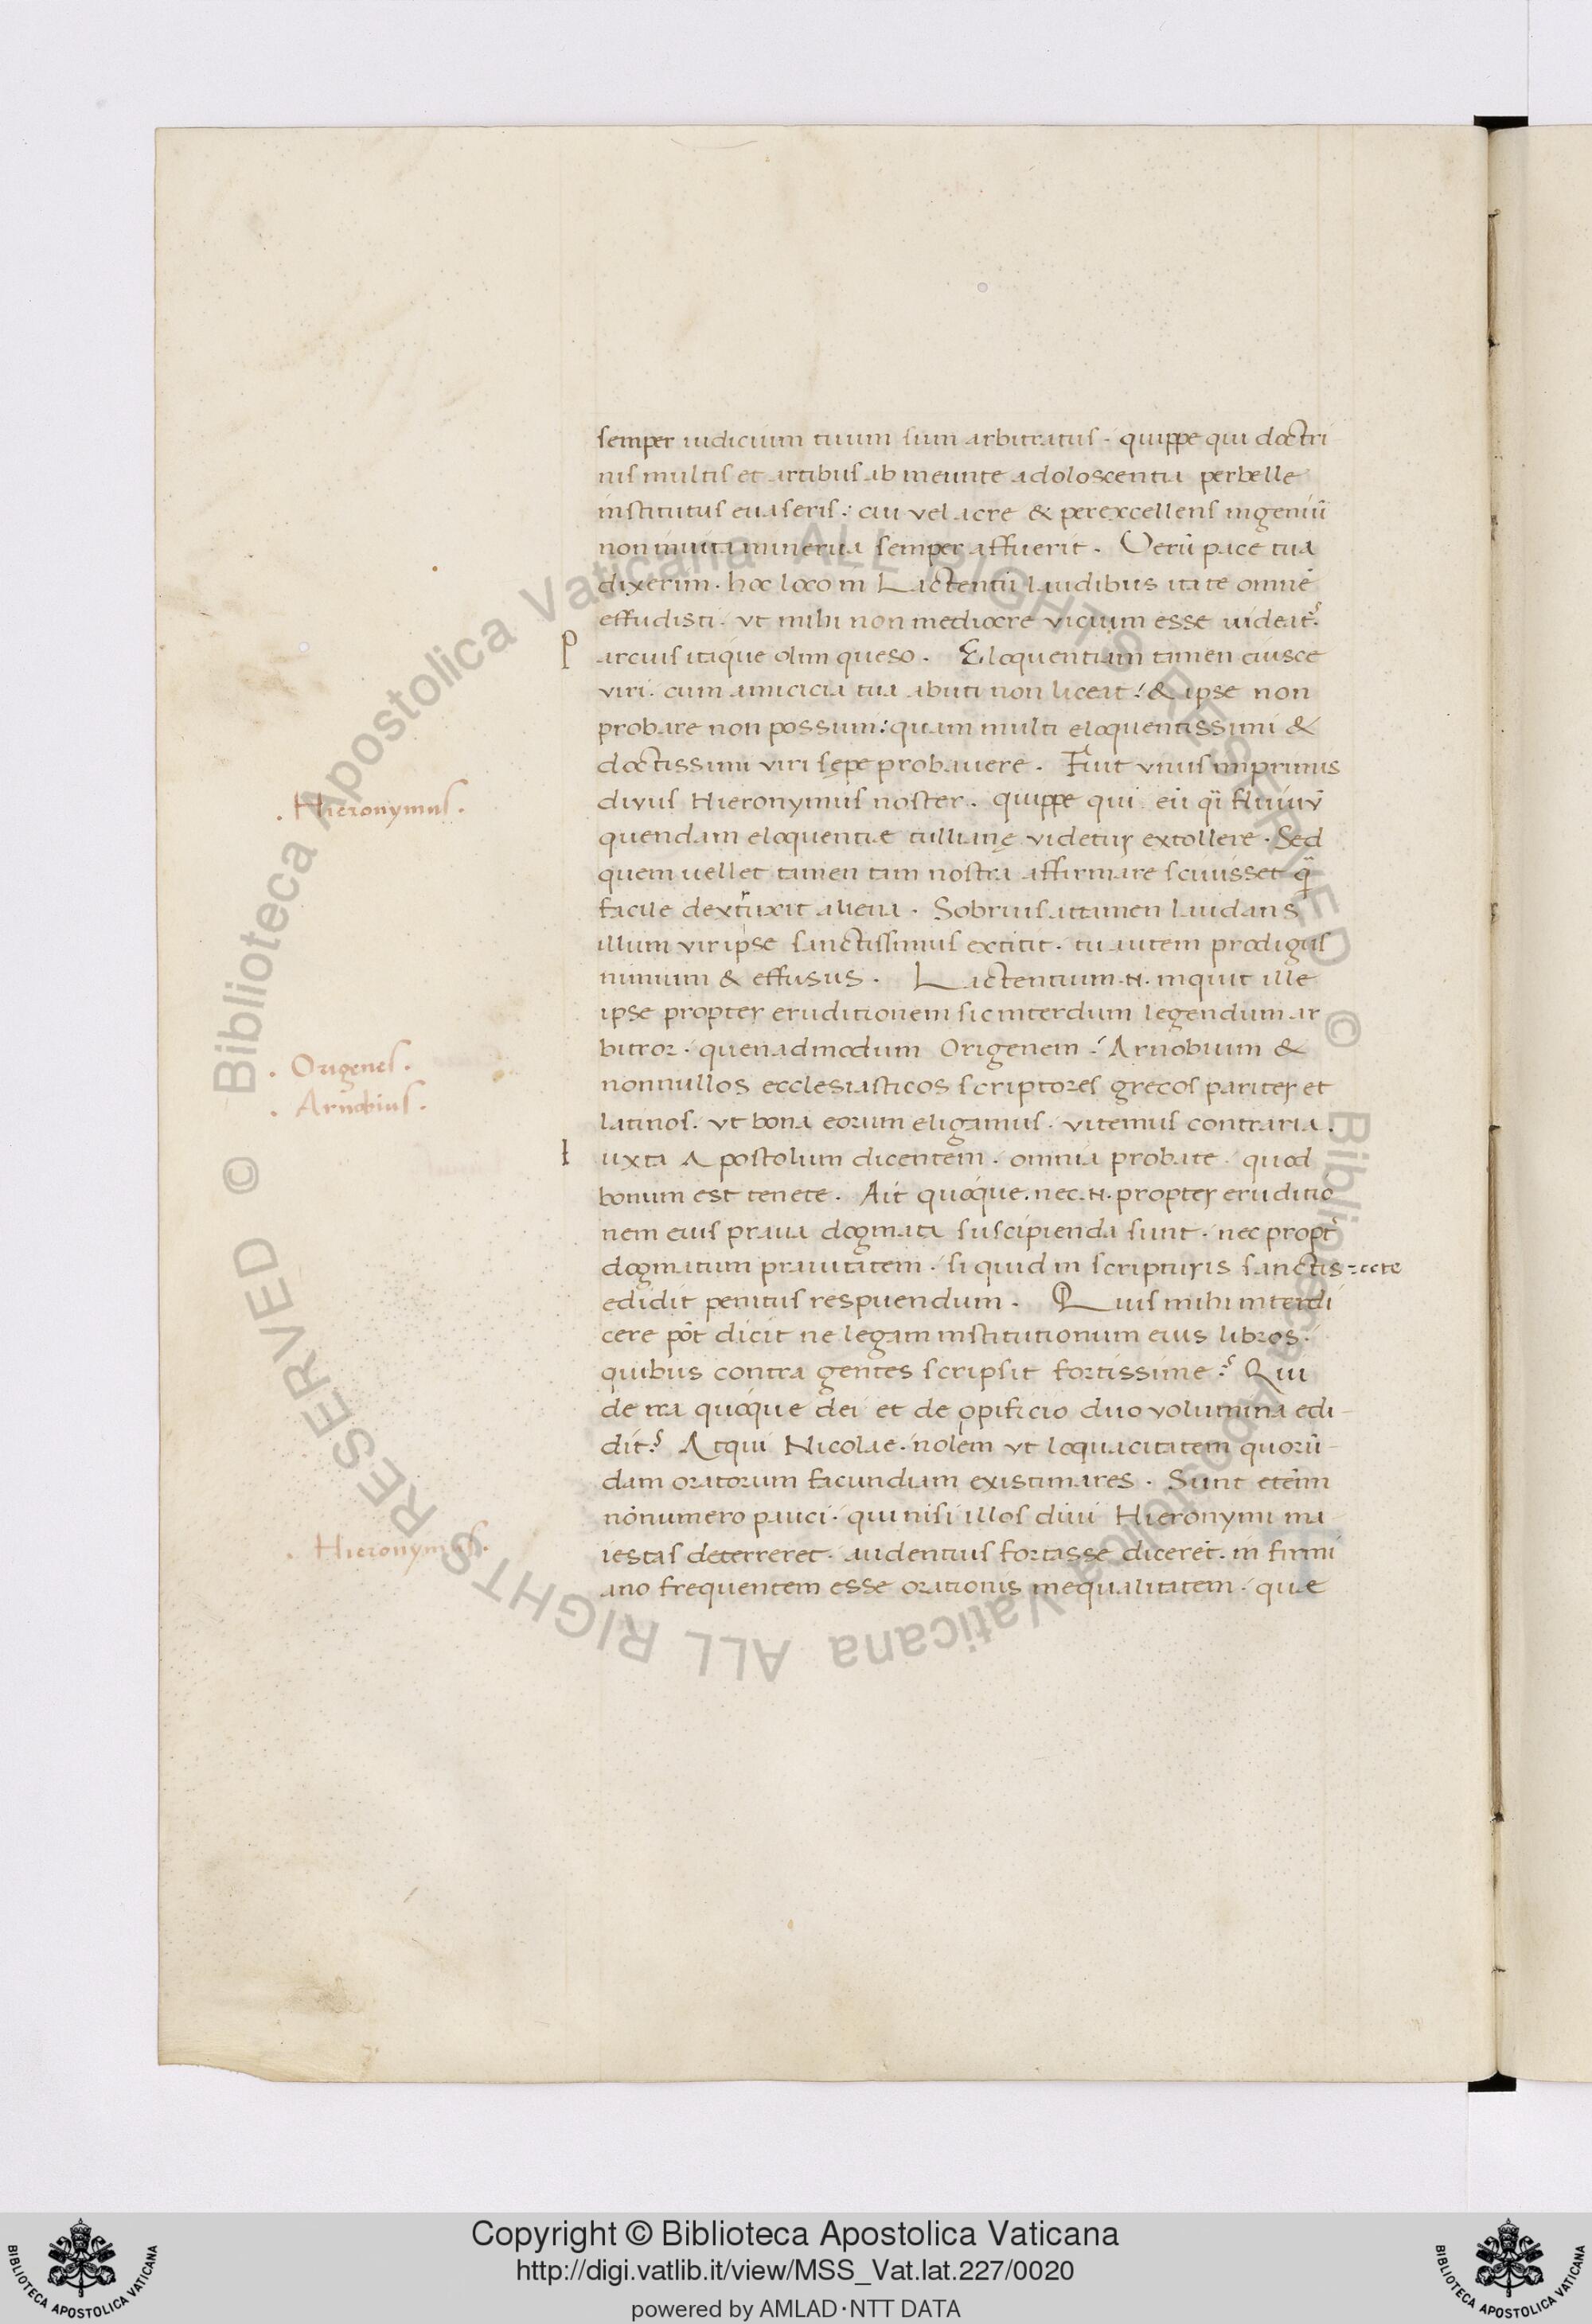 semper iudicium tuum sum arbitratus · quippe qui doctri
nis multis et artibus ab ineunte adoloscentia perbelle
institutus euaseris · cui vel acre & perexcellens ingeniū
non inuita minerua semper affuerit · Verū pace tua
dixerim · hoc loco in Lactentii laudibus ita te omnē
effudisti · vt mihi non mediocre vicium esse uideat᷑
Parcius itaque olim queso · Eloquentiam tamen eiusce
viri · cum amicicia tua abuti non liceat : & ipse non
probare non possum : quam multi eloquentissimi &
doctissimi viri sępe probauere · Fuit vnus inprimis
. Hieronymus .
divus Hieronymus noster · quippe qui eū q̄i fluuiū
quendam eloquentiæ tullianę videtur extollere · Sed
quem uellet tamen tam nostra affirmare sciuisset q̄
facile dextruxit aliena · Sobrius attamen laudans
illum vir ipse sanctissimus extitit · tu autem prodigus
nimium & effusus · Lactentium .N. inquit ille
ipse propter eruditionem sic interdum legendum ar
bitror · quenadmodum Origenem · Arnobium &
. Origenes .
. Arnobius .
nonnullos ecclesiasticos scriptores grecos pariter et
latinos · vt bona eorum eligamus · vitemus contraria .
Iuxta Apostolum dicentem · omnia probate · quod
bonum est tenete · Ait quoque · nec .N. propter eruditio
nem eius praua dogmata suscipienda sunt · nec propt̄
dogmatum prauitatem · si quid in scripturis sanctis recte
edidit penitus respuendum · Quis mihi interdi
cere pōt dicit ne legam institutionum eius libros ·
quibus contra gentes scripsit fortissime ? Qui
de ira quoque dei et de opificio duo volumina edi-
dit ? Atqui Nicolae · nolem vt loquacitatem quorū-
dam oratorum facundiam existimares · Sunt etēim
nō numero pauci · qui nisi illos diui Hieronymi ma
. Hieronymus .
iestas deterreret · audentius fortasse dicerēt · in firmi
ano frequentem esse orationis inequalitatem · quæ
Copyright © Biblioteca Apostolica Vaticana
http://digi.vatlib.it/view/MSS_Vat.lat.227/0020
powered by AMLAD·NTT DATA
BIBLIOTECA APOSTOLICA VATICANA
BIBLIOTECA APOSTOLICA VATICANA
© Biblioteca Apostolica Vaticana ALL RIGHTS RESERVED
© Biblioteca Apostolica Vaticana ALL RIGHTS RESERVED